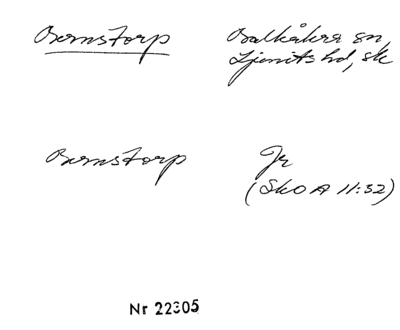 Bernstorp Balkåkra sn,
Ljunits hd, Sk
Bernstorp Jr
(SkO A 11:32)
Nr 22305